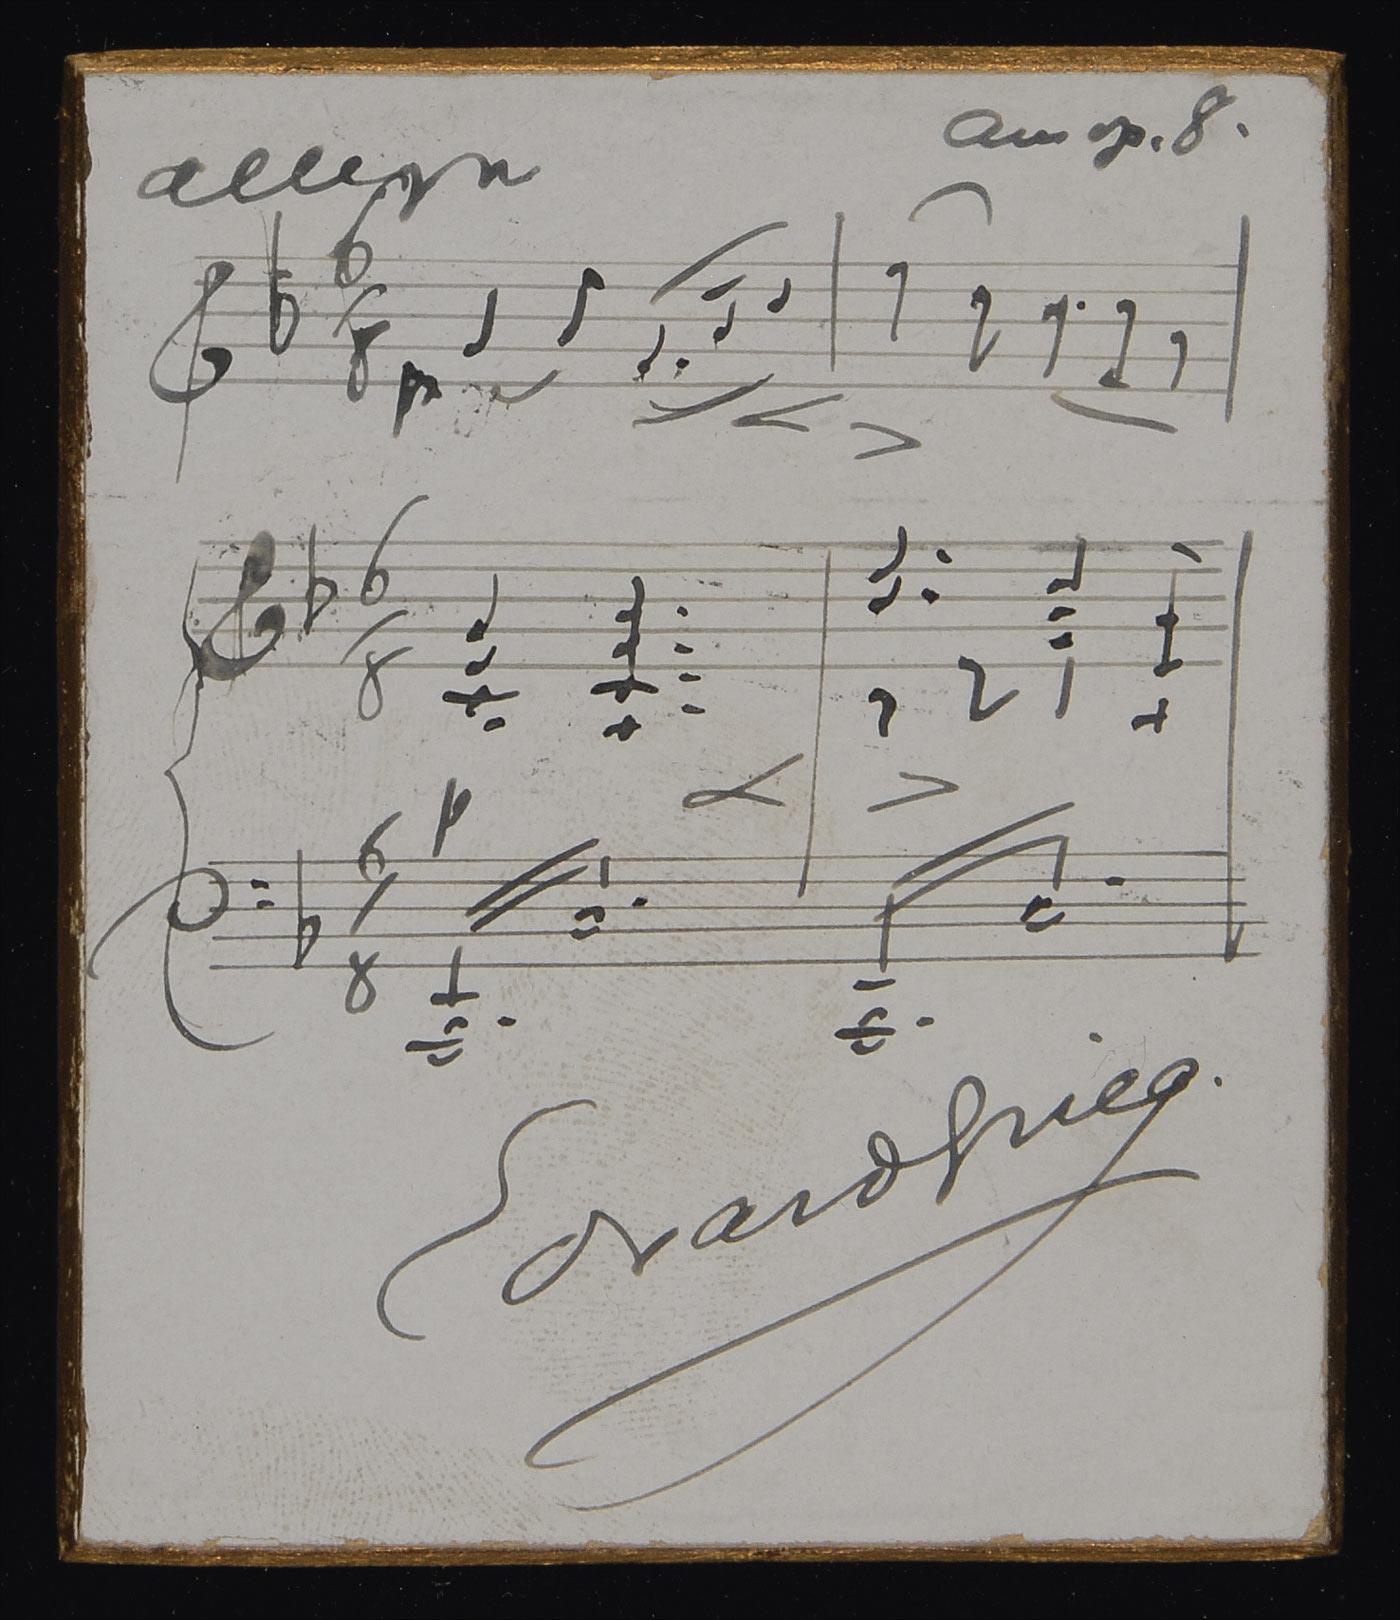 aus op. 8.
Allegro
6
8
p
6
8
p
6
8
Edvard Grieg.